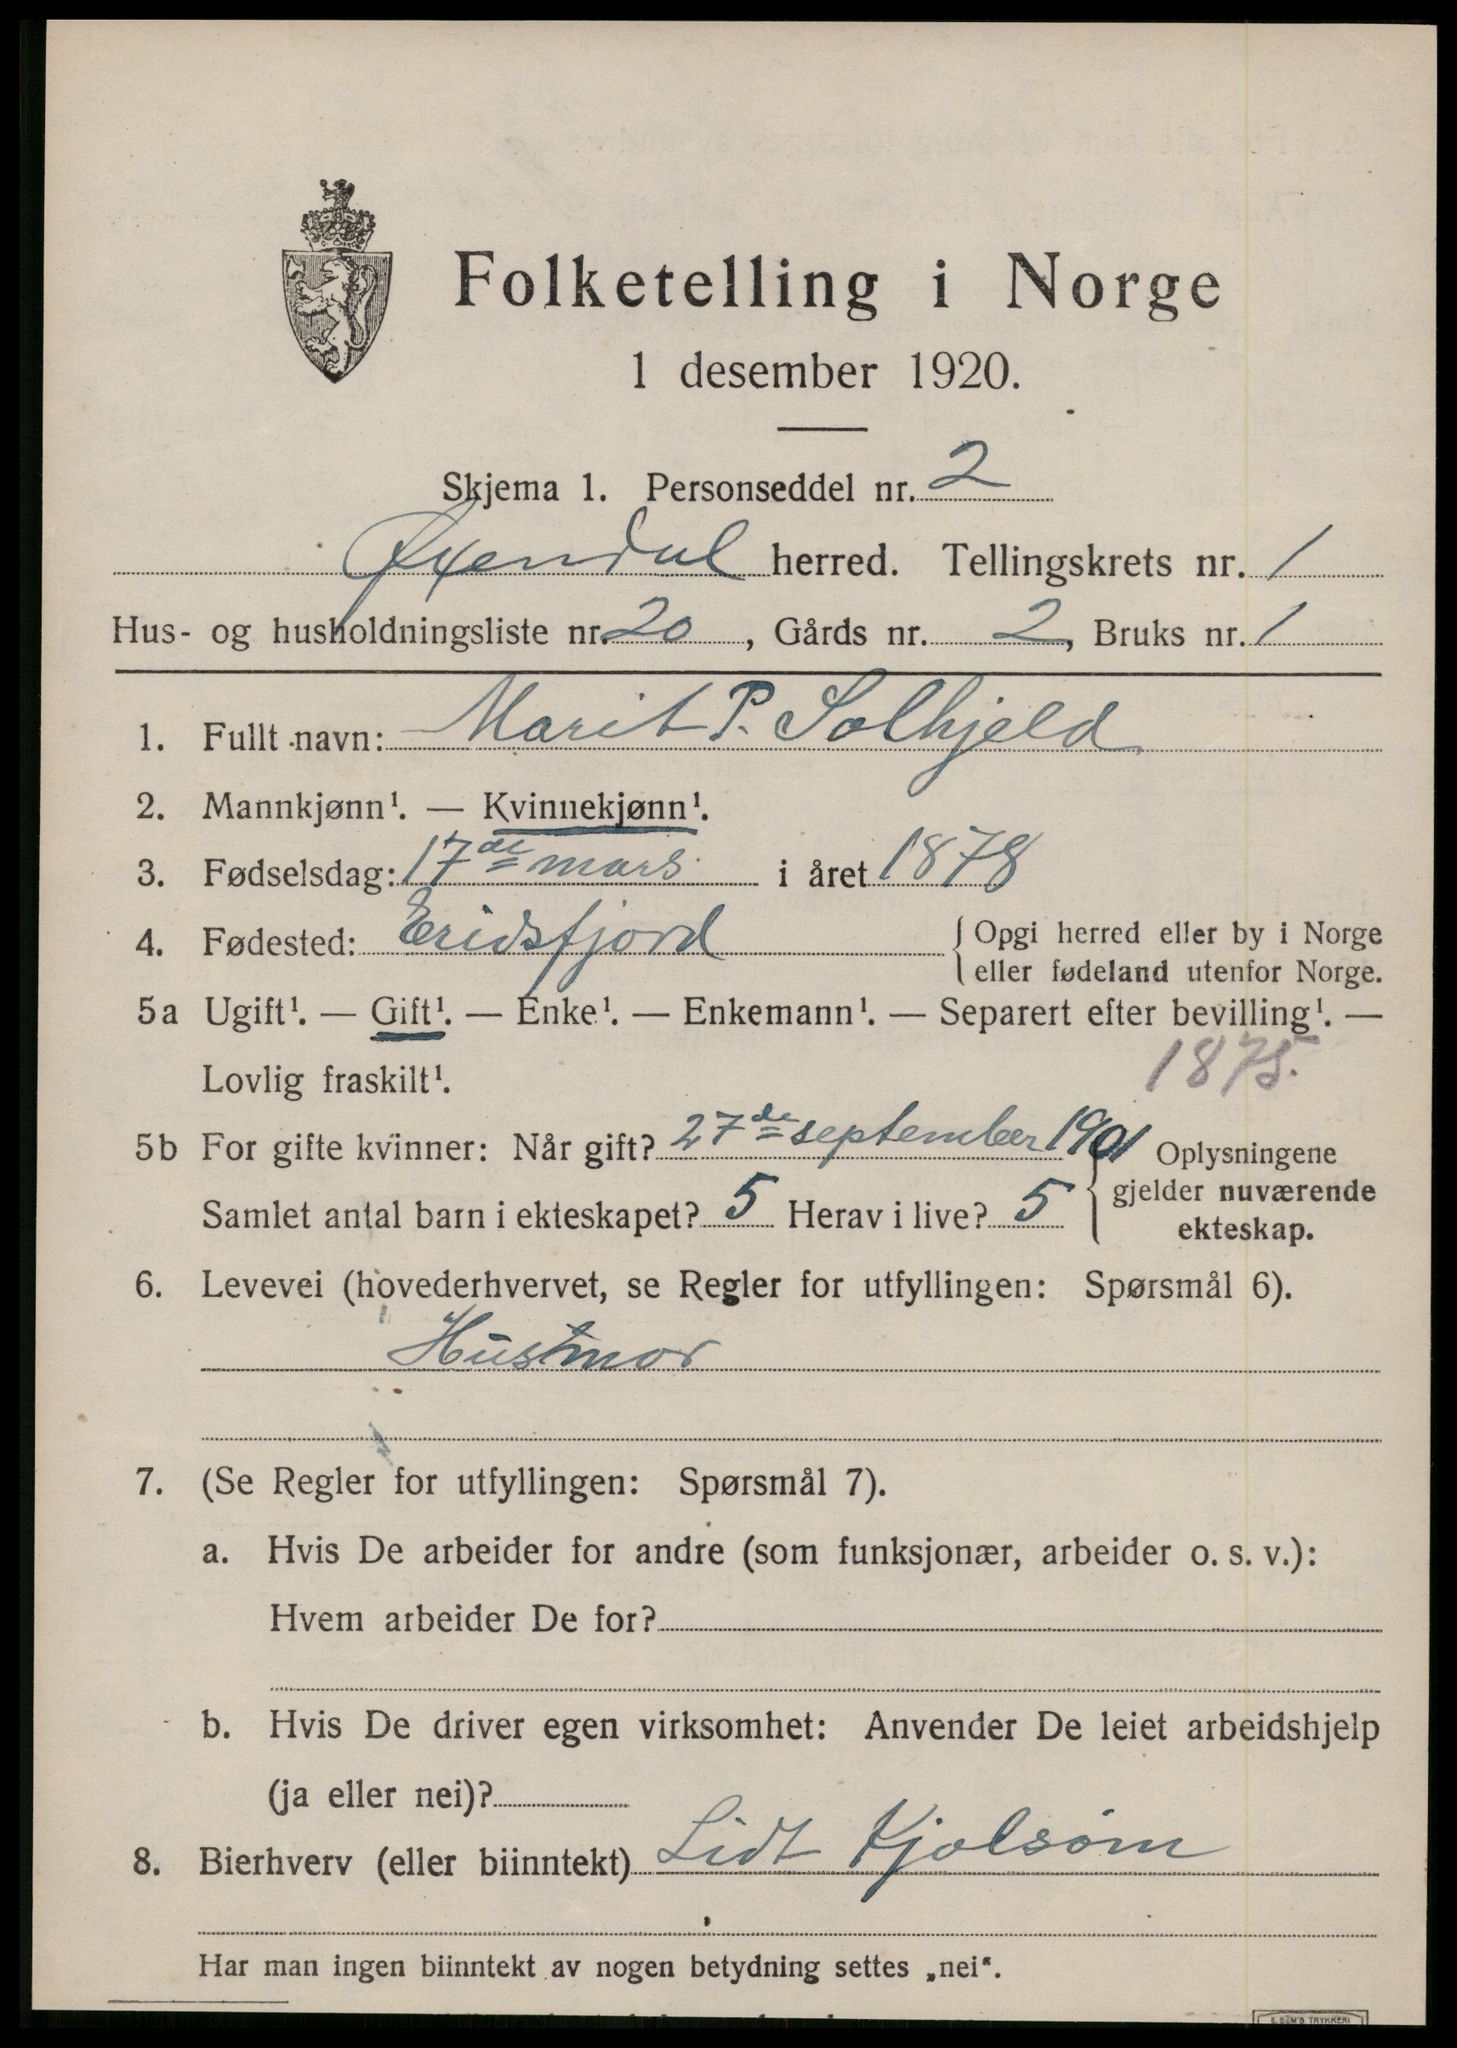 Folketelling i Norge
1 desember 1920.
Skjema 1. Personseddel nr. 2
Øxendal herred. Tellingskrets nr. 1
Hus- og husholdningsliste nr. 20, Gårds nr. 2, Bruks nr. 1
1. Fullt navn: Marit P. Solhjeld
2. Mannkjønn¹. — Kvinnekjønn¹.
3. Fødselsdag: 17de mars i året 1878
4. Fødested: Eridsfjord { Opgi herred eller by i Norge
eller fødeland utenfor Norge.
5a Ugift¹. — Gift¹. — Enke¹. — Enkemann¹. — Separert efter bevilling¹. —
Lovlig fraskilt¹. 1875.
5b For gifte kvinner: Når gift? 27de september 1901
Samlet antal barn i ekteskapet? 5 Herav i live? 5
{ Oplysningene
gjelder nuværende
ekteskap.
6. Levevei (hovederhvervet, se Regler for utfyllingen: Spørsmål 6).
Hustmor
7. (Se Regler for utfyllingen: Spørsmål 7).
a. Hvis De arbeider for andre (som funksjonær, arbeider o. s. v.):
Hvem arbeider De for?
b. Hvis De driver egen virksomhet: Anvender De leiet arbeidshjelp
(ja eller nei)?
8. Bierhverv (eller biinntekt) Lidt Kjolsøm
Har man ingen biinntekt av nogen betydning settes „nei“.
E. SEM'S TRYKKERI